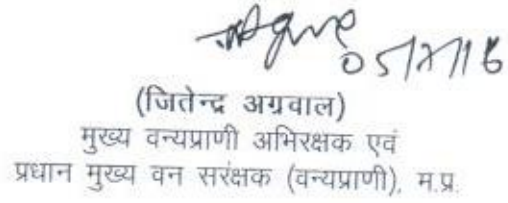 05/7/16
(जितेन्द्र अग्रवाल)
मुख्य वन्यप्राणी अभिरक्षक एवं
प्रधान मुख्य वन सरंक्षक (वन्यप्राणी), म.प्र.